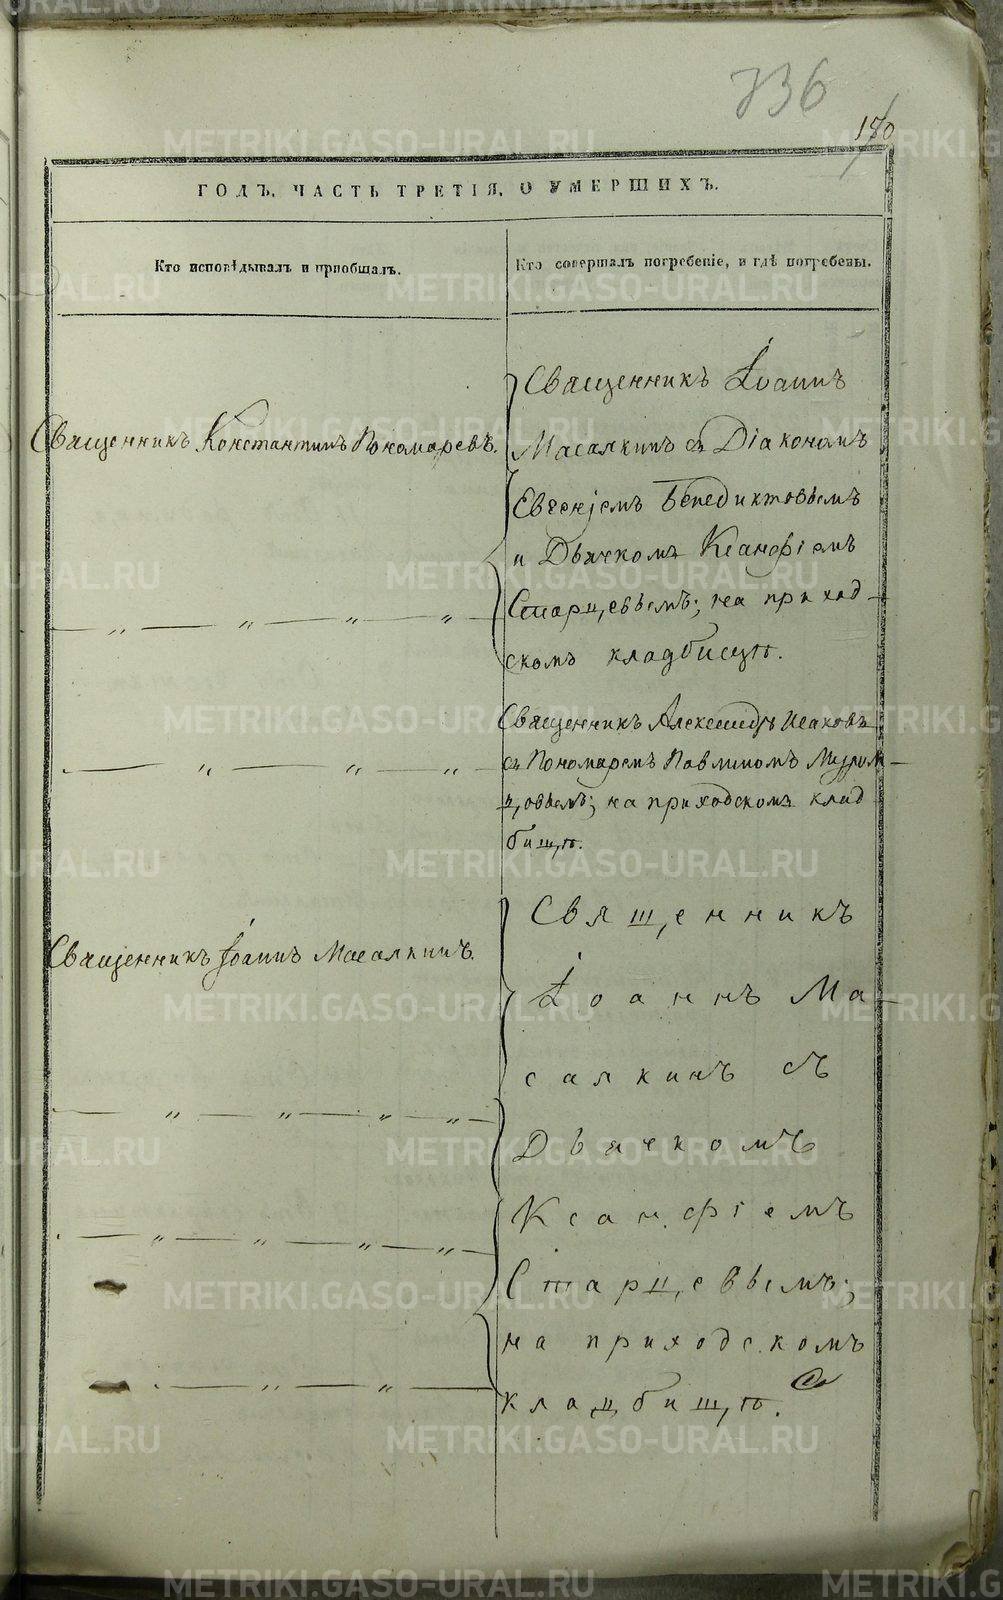 736
170
ГОДЪ, ЧАСТЬ ТРЕТІЯ, О УМЕРШИХЪ.
Кто исповѣдывалъ и пріобщалъ.
Кто совершалъ погребеніе, и гдѣ погребены.
Священникъ Константинъ Пономаревъ.
— „ — „ — „ — „ —
— „ — „ — „ —
Священникъ Іоаннъ Масалкинъ.
— „ — „ — „ — „ —
— „ — „ — „ — „ —
— „ — „ —
Священникъ Іоаннъ
Масалкинъ съ Діакономъ
Евгеніемъ Бенедиктовымъ
и Дьячкомъ Ксанфіемъ
Старцевымъ; на приход-
скомъ кладбищѣ.
Священникъ Александръ Исаковъ
съ Пономаремъ Павлиномъ
цовымъ; на приходскомъ клад
бищѣ.
Священникъ
Іоаннъ Ма-
салкинъ съ
Дьячкомъ
Ксанфіемъ
Старцевымъ;
на приходскомъ
кладбищѣ.
METRIKI.GASO-URAL.RU